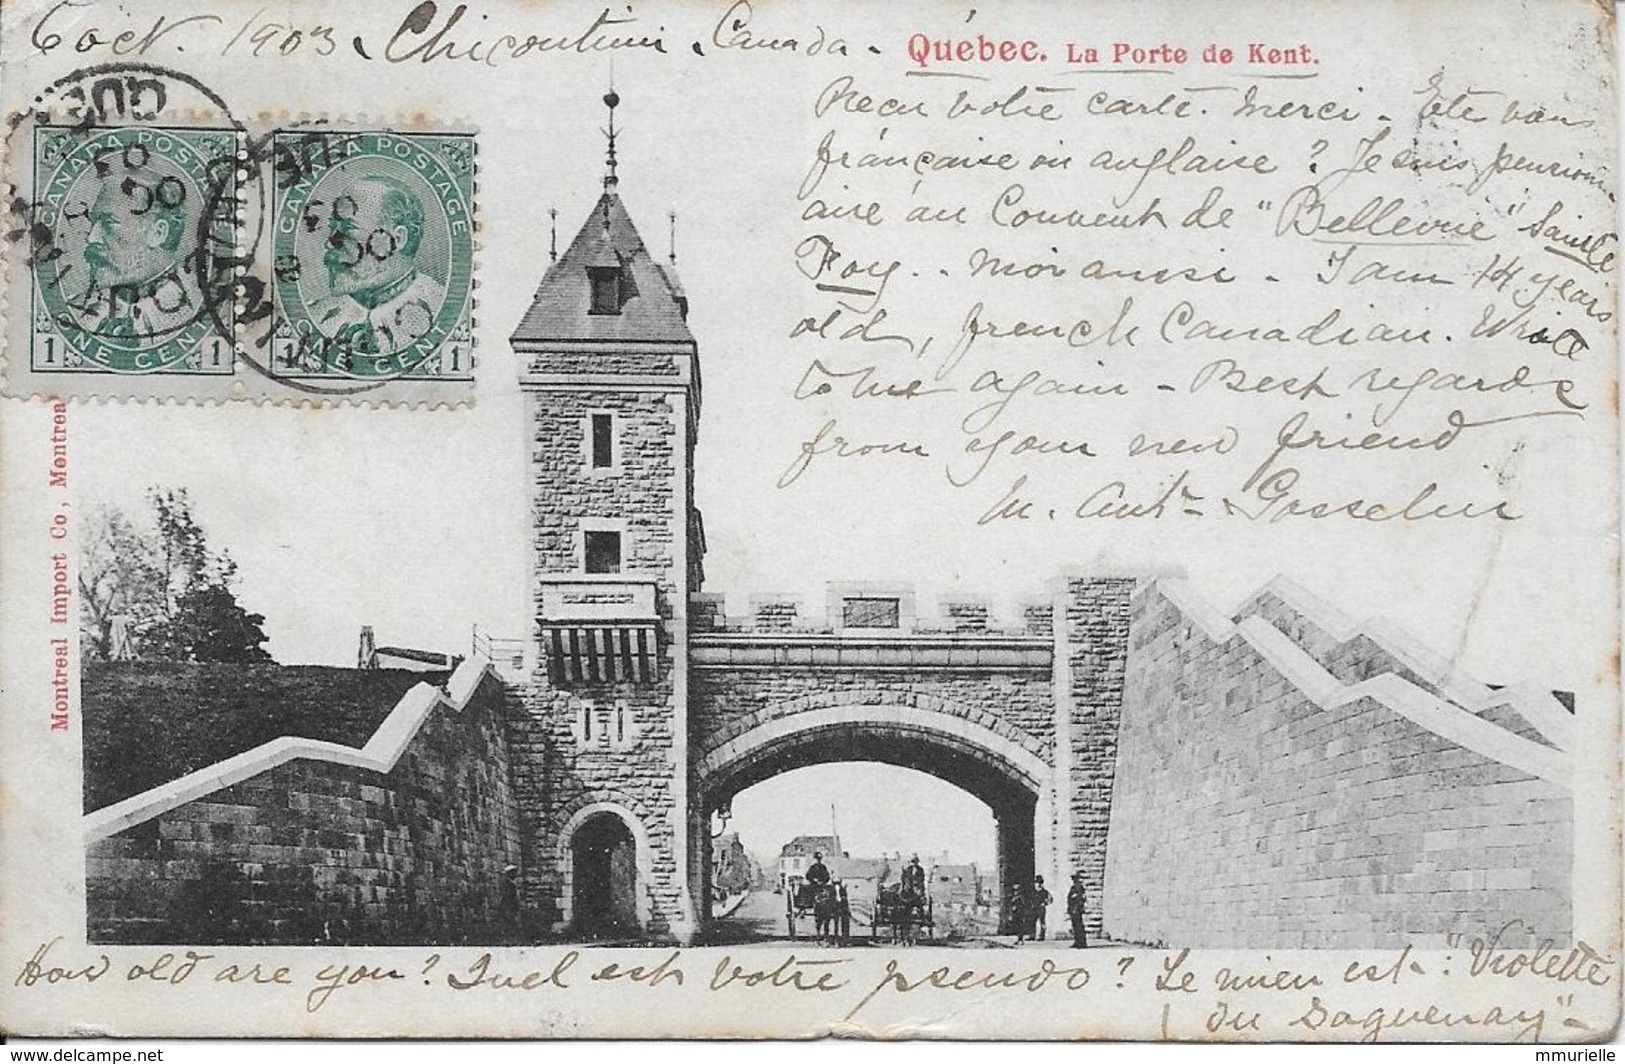 6 oct. 1903. Chicoutimi. Canada.
Québec. La Porte de Kent.
Recu votre carte. Merci. Etes vous
française ou anglaise? Je suis pension-
aire au Couvent de "Bellevue" Sainte
Foy.. Moi aussi. I am 14 years
old, french Canadian. Write
to me again - Best regards
from your new friend
M. Ant. Gosselin
CANADA POSTAGE
CANADA POSTAGE
1 ONE CENT 1
1 ONE CENT 1
Montreal Import Co, Montrea
How old are you? Quel est votre pseudo? Le mien est: "Violette
du Saguenay"
mmurielle